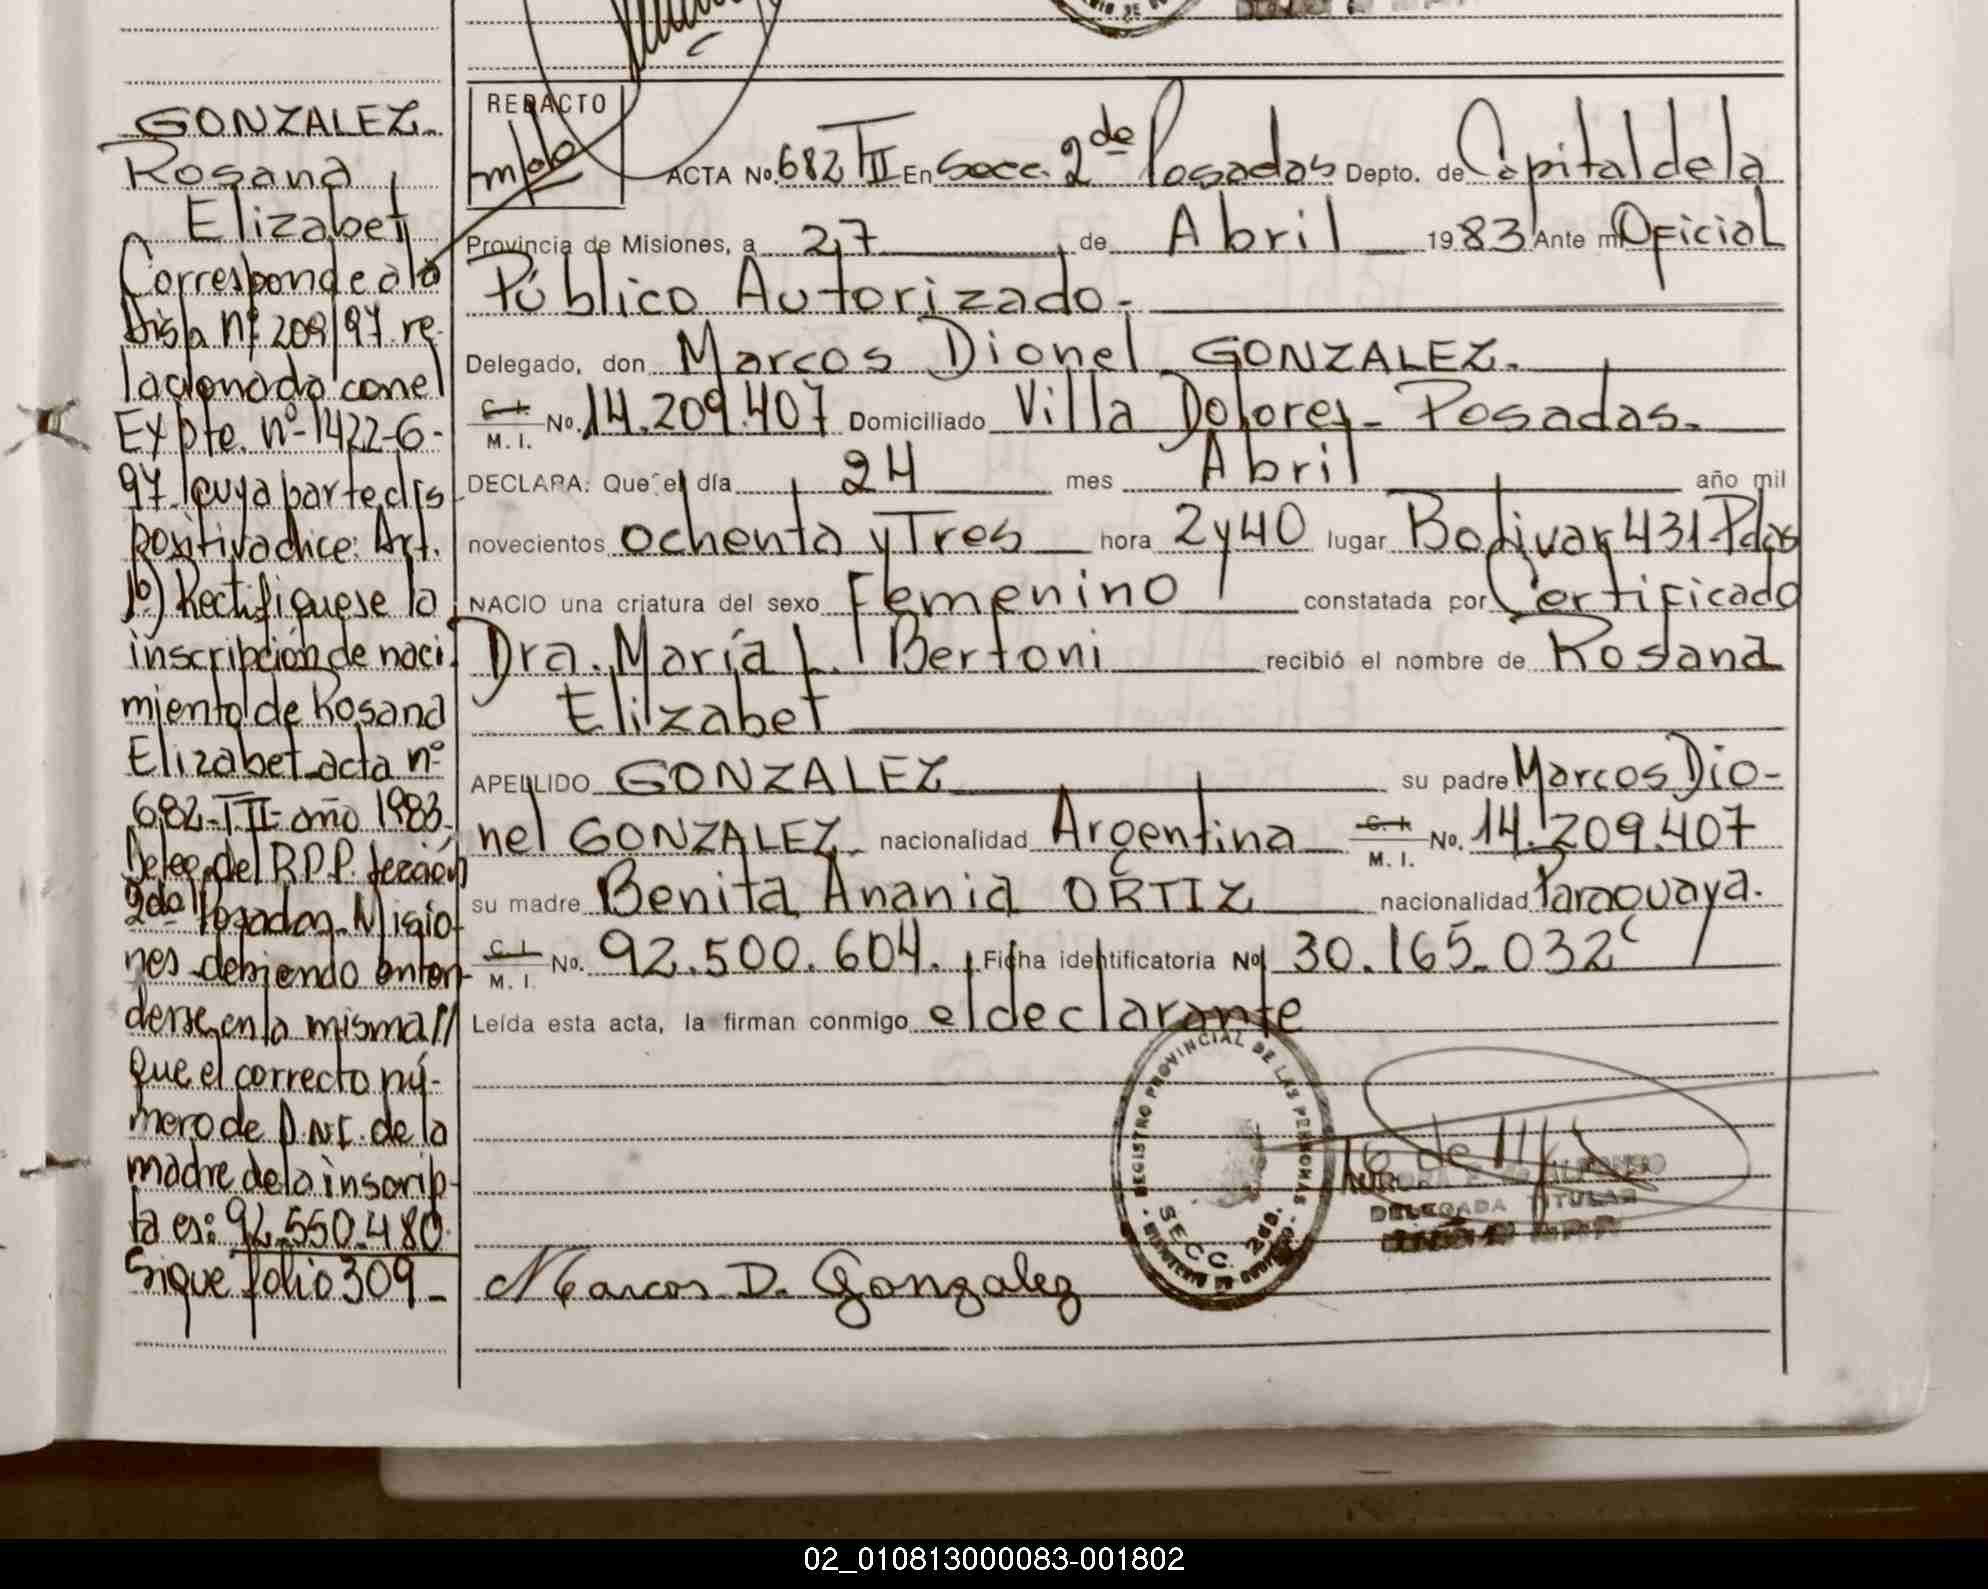 GONZALEZ.
Rosana
Elizabet
Corresponde a la
Disp. nº 209/97 re-
lacionada con el
Expte. nº 1422-G-
97 cuya parte dis
positiva dice: Art.
1º) Rectifiquese la
inscripción de naci-
miento de Rosana
Elizabet acta nº
682-TII-año 1983,
Deleg. del R.P.P. Sección
2da Posadas-Misio-
nes debiendo enten-
derse en la misma//
que el correcto nú-
mero de D.N.I. de la
madre de la inscrip-
ta es: 92.550.480.
Sigue folio 309-
REDACTO
ACTA No. 682 TII En Secc. 2da Posadas Depto. de Capital de la
Provincia de Misiones, a 27 de Abril 1983 Ante mí Oficial
Público Autorizado.-
Delegado, don Marcos Dionel GONZALEZ.
C. I. M. I. No. 14.209.407 Domiciliado Villa Dolores- Posadas.
DECLARA: Que el día 24 mes Abril año mil
novecientos ochenta y Tres hora 2 y 40 lugar Bolivar 431-Pdas
NACIO una criatura del sexo Femenino constatada por Certificado
Dra. María L. Bertoni recibió el nombre de Rosana
Elizabet
APELLIDO GONZALEZ su padre Marcos Dio-
nel GONZALEZ nacionalidad Argentina C. I. M. I. No. 14.209.407
su madre Benita Anania ORTIZ nacionalidad Paraguaya.
C. I. M. I. No. 92.500.604. Ficha identificatoria No 30.165.032
Leída esta acta, la firman conmigo el declarante
REGISTRO PROVINCIAL DE LAS PERSONAS
SECC. 2da.
DELEGADA TITULAR
Marcos D. Gonzalez
02_010813000083-001802